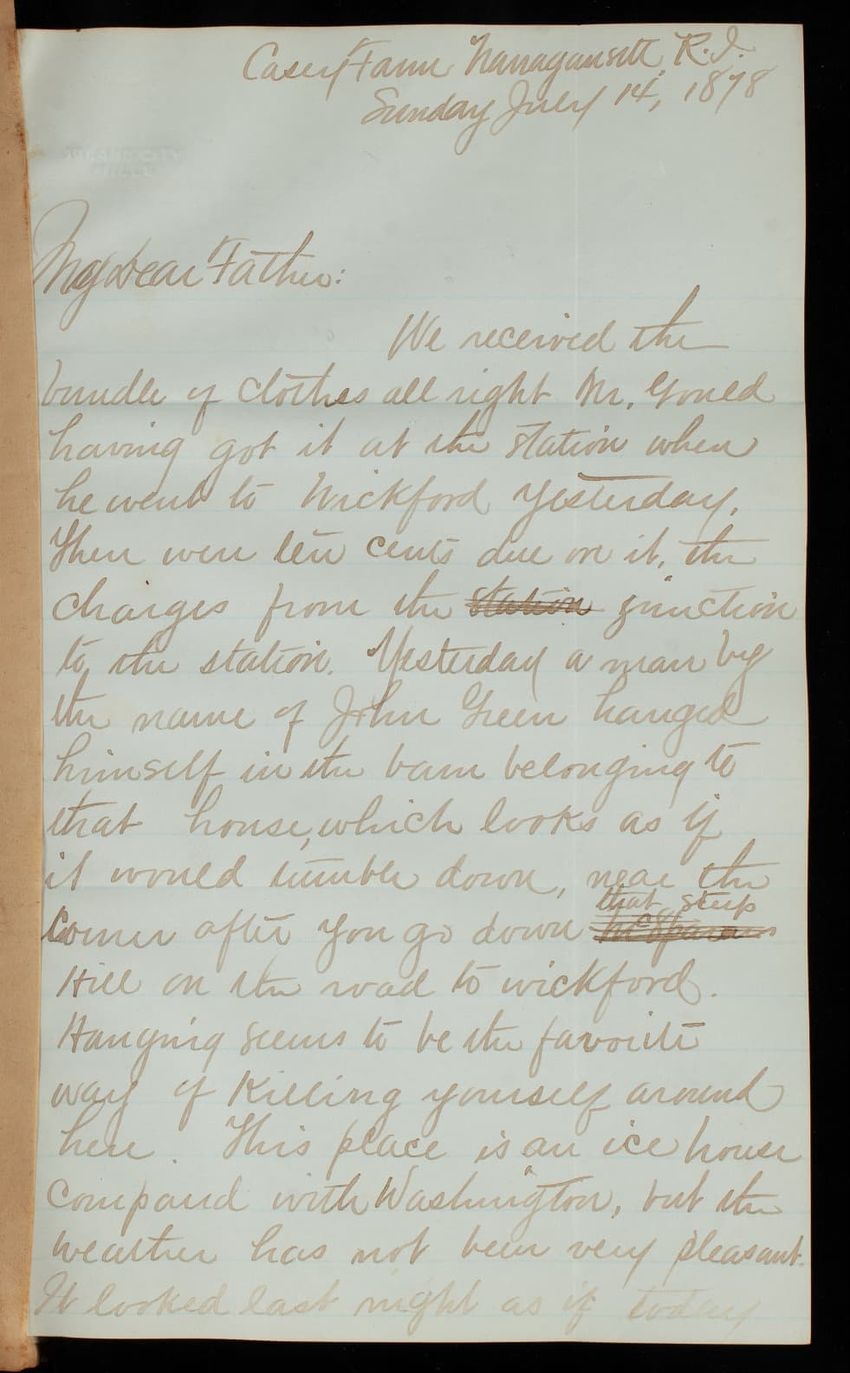 Casey Farm Narragansett R.I.
Sunday July 14, 1878
My dear Father:
We received the
bundle of clothes all right Mr. Gould
having got it at the station when
he went to Wickford yesterday.
There were ten cents due on it, the
charges from the station junction
to the station. Yesterday a man by
the name of John Green hanged
himself in the barn belonging to
that house, which looks as if
it would tumble down, near the
that steep
corner after you go down
Hill on the road to wickford.
Hanging seems to be the favorite
way of Killing yourself around
here. This place is an ice house
compared with Washington, but the
weather has not been very pleasant.
It looked last night as if today